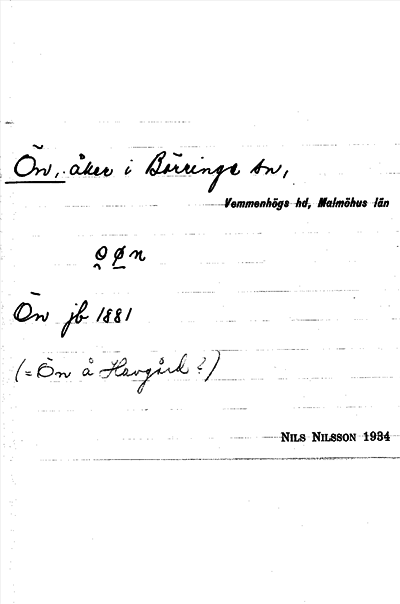 Ön, åker i Börringe sn,
Vemmenhögs hd, Malmöhus län
o̯ø̲n
Ön jb 1881
(= Ön å Havgård?)
NILS NILSSON 1934